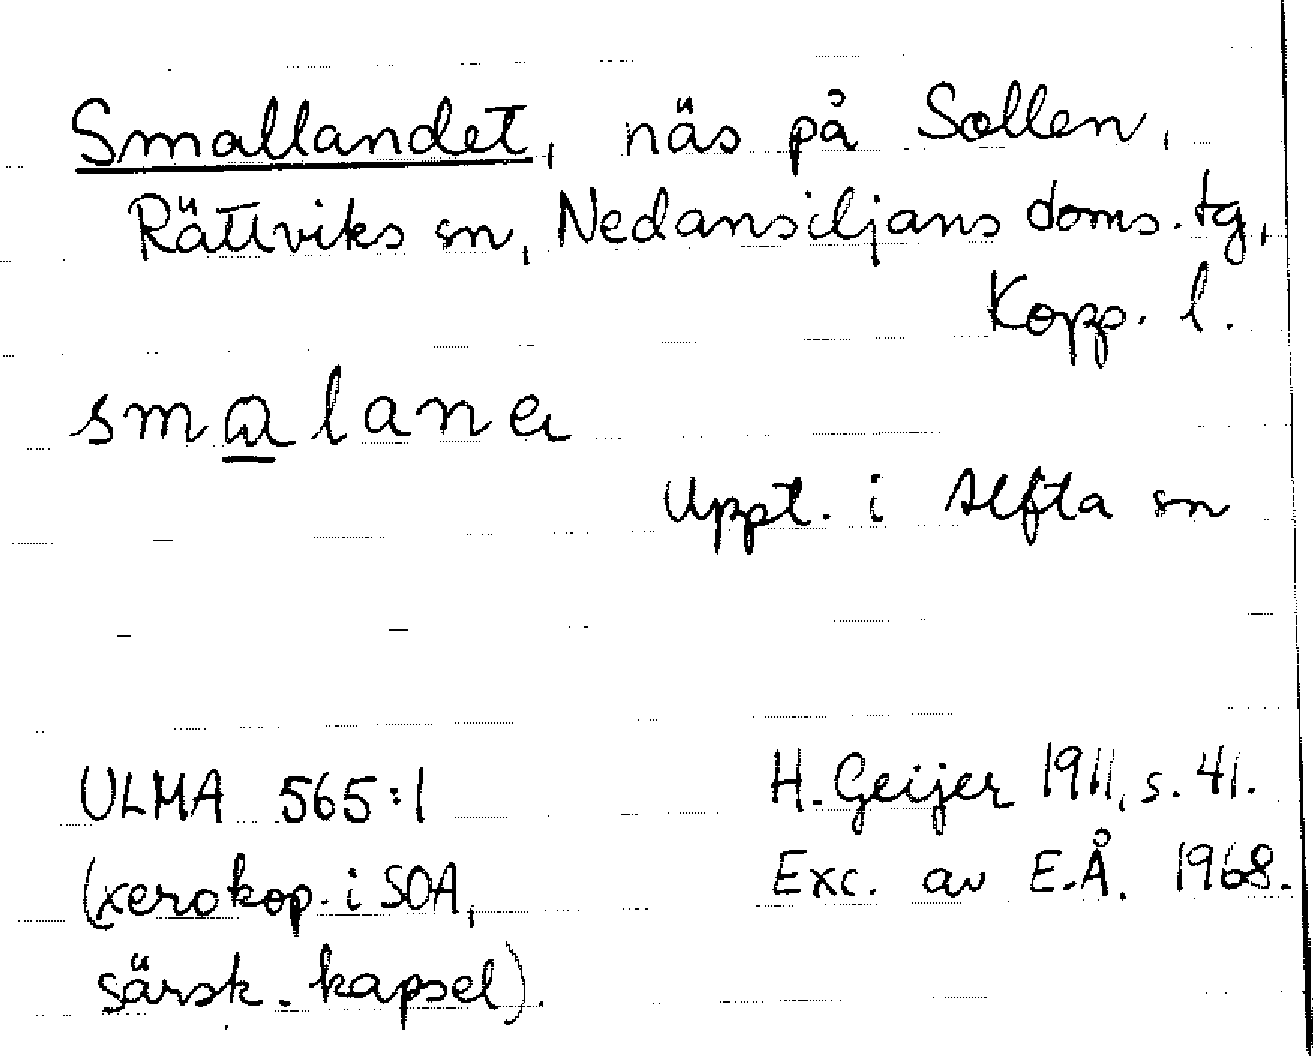 Smallandet, näs på Sollen,
Rättviks sn, Nedansiljans doms.tg,
Kopp. l.
smalane
Uppt. i Alfta sn
ULMA 565:1
H. Geijer 1911, s. 41.
(xerokop. i SOA,
Exc. av E.Å. 1968.
särsk. kapsel).